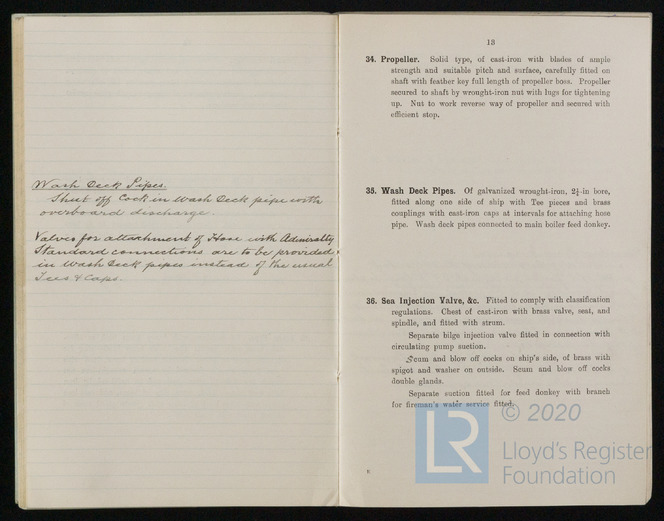 Wash Deck Pipes.
Shut off Cock in Wash Deck pipe with
overboard discharge.
Valves for attachment of Hose with Admiralty
Standard connections are to be provided
in Wash Deck pipes instead of the usual
Tees & Caps.
13
34. Propeller. Solid type, of cast-iron with blades of ample
strength and suitable pitch and surface, carefully fitted on
shaft with feather key full length of propeller boss. Propeller
secured to shaft by wrought-iron nut with lugs for tightening
up. Nut to work reverse way of propeller and secured with
efficient stop.
35. Wash Deck Pipes. Of galvanized wrought-iron, 2½-in bore,
fitted along one side of ship with Tee pieces and brass
couplings with cast-iron caps at intervals for attaching hose
pipe. Wash deck pipes connected to main boiler feed donkey.
36. Sea Injection Valve, &c. Fitted to comply with classification
regulations. Chest of cast-iron with brass valve, seat, and
spindle, and fitted with strum.
Separate bilge injection valve fitted in connection with
circulating pump suction.
Scum and blow off cocks on ship's side, of brass with
spigot and washer on outside. Scum and blow off cocks
double glands.
Separate suction fitted for feed donkey with branch
for fireman's water service fitted.
LR
© 2020
Lloyd's Register
Foundation